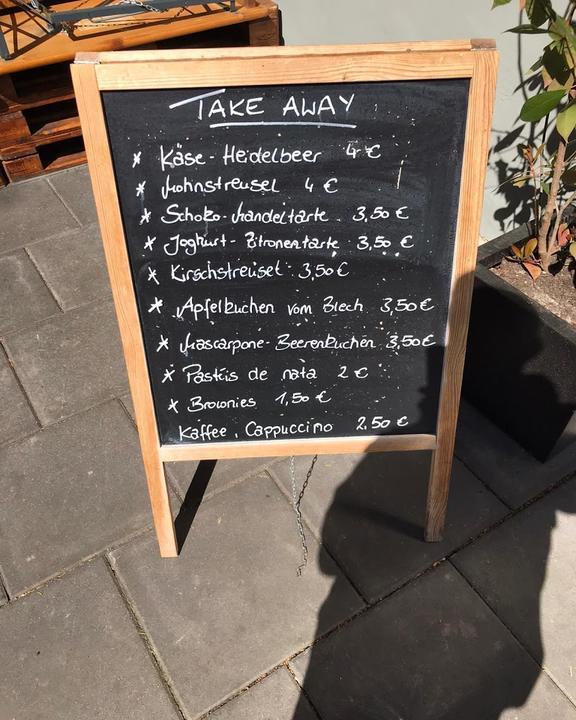 TAKE AWAY
* Käse-Heidelbeer 4 €
* Mohnstreusel 4 €
* Schoko-Mandeltarte 3,50 €
* Joghurt-Zitronentarte 3,50 €
* Kirschstreusel 3,50 €
* Apfelkuchen vom Blech 3,50 €
* Mascarpone-Beerenkuchen 3,50 €
* Pasteis de nata 2 €
* Brownies 1,50 €
Kaffee, Cappuccino 2,50 €